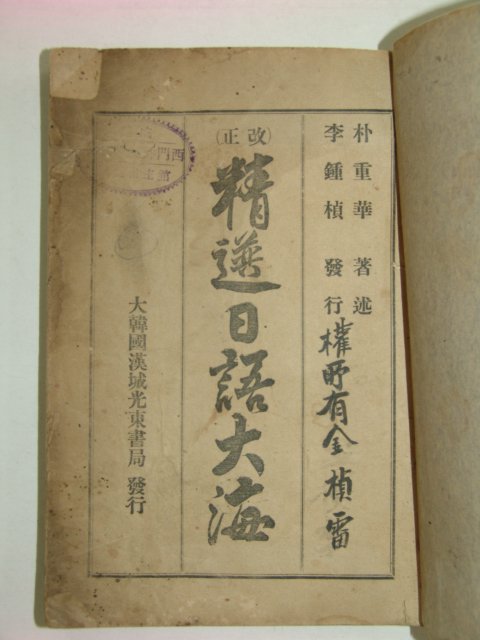 朴重華 著述
李鍾楨 發行
權所有金楨雷
(改正)
精選日語大海
大韓國漢城光東書局 發行
西門